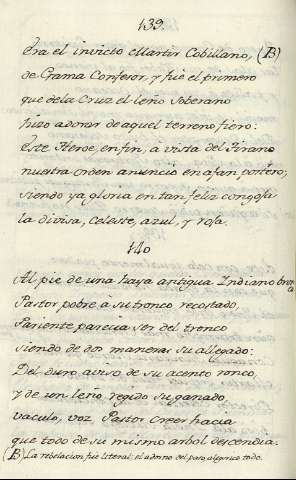 139.
Era el invicto Martir Cobillano, (B)
de Grama Confesor, y fuè el primero
que dela Cruz el leño Soberano
hizo adorar de aquel terreno fiero:
Este Heroe, en fin, à vista del Tirano
nuestra orden anunciò en afan postrero,
siendo ya gloria en tan feliz congoja
la divisa, Celeste, azul, y roja.
140
Al pie de una haya antigua Indiano
Pastor pobre à su tronco recostado,
Pariente parecia ser del tronco
siendo de dos maneras su allegado:
Del duro aviso de su acento ronco,
y de un leño regido su ganado
vaculo, voz Pastor creer hacia
que todo de su mismo arbol descendia.
(B) La rebelacion fuè literal: el adorno del paso, alegorico todo.